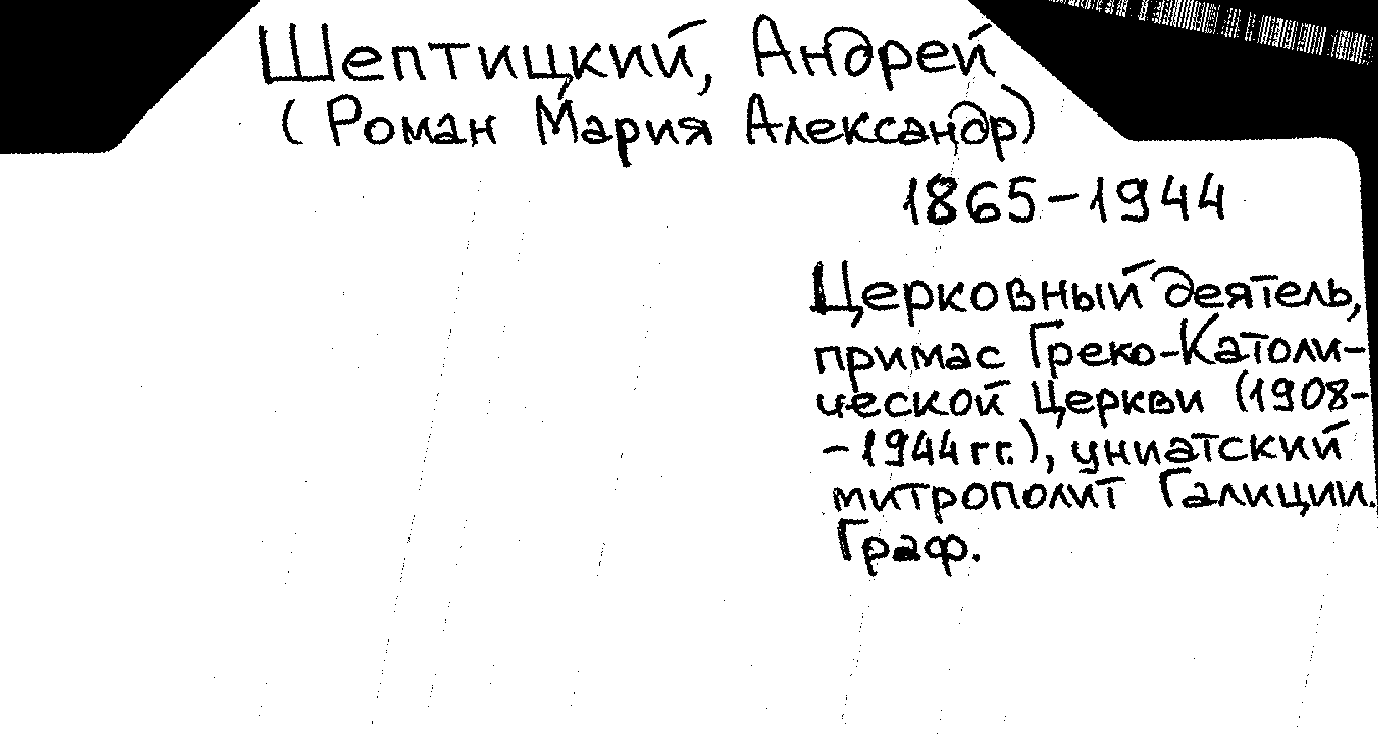 Шептицкий, Андрей
(Роман Мария Александр)
1865-1944
Церковный деятель,
примас Греко-Католи-
ческой Церкви (1908-
-1944 гг.), униатский
митрополит Галиции.
Граф.